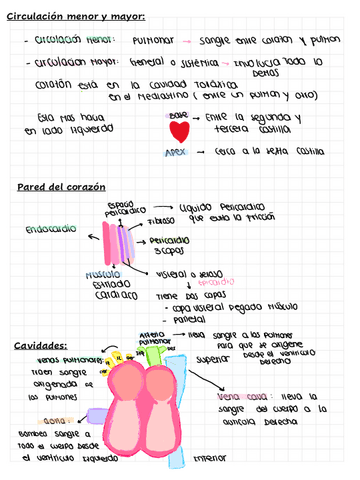 Circulación menor y mayor:
- Circulación Menor: Pulmonar → sangre entre corazon y pulmon
- Circulación Mayor: General o sistémica → Involucra todo lo demas
Corazón está en la cavidad Torácica
en el Mediastino (entre un pulmon y otro)
Esta mas hacia en lado Izquierdo
Base → Entre la segunda y tercera costilla
Apex → Cerca a la sexta costilla
Pared del corazón
Espacio pericardico → Liquido Pericardico que evita la fricción
Fibroso
Endocardio
Pericardio
3 capas
Musculo
Estriado
Cardiaco
Visceral o seroso
Epicardio
Tiene dos capas
- Capa visceral pegado Músculo
- Parietal
Cavidades:
Arteria Pulmonar → lleva sangre a los pulmones para que se oxigene desde el ventriculo derecho
Venas Pulmonares:
Traen sangre
oxigenada de
los pulmones
Superior
Vena cava: lleva la
sangre del cuerpo a la
auricula derecha
aorta:
Bombea sangre a
todo el cuerpo desde
el ventriculo Izquierdo
Inferior